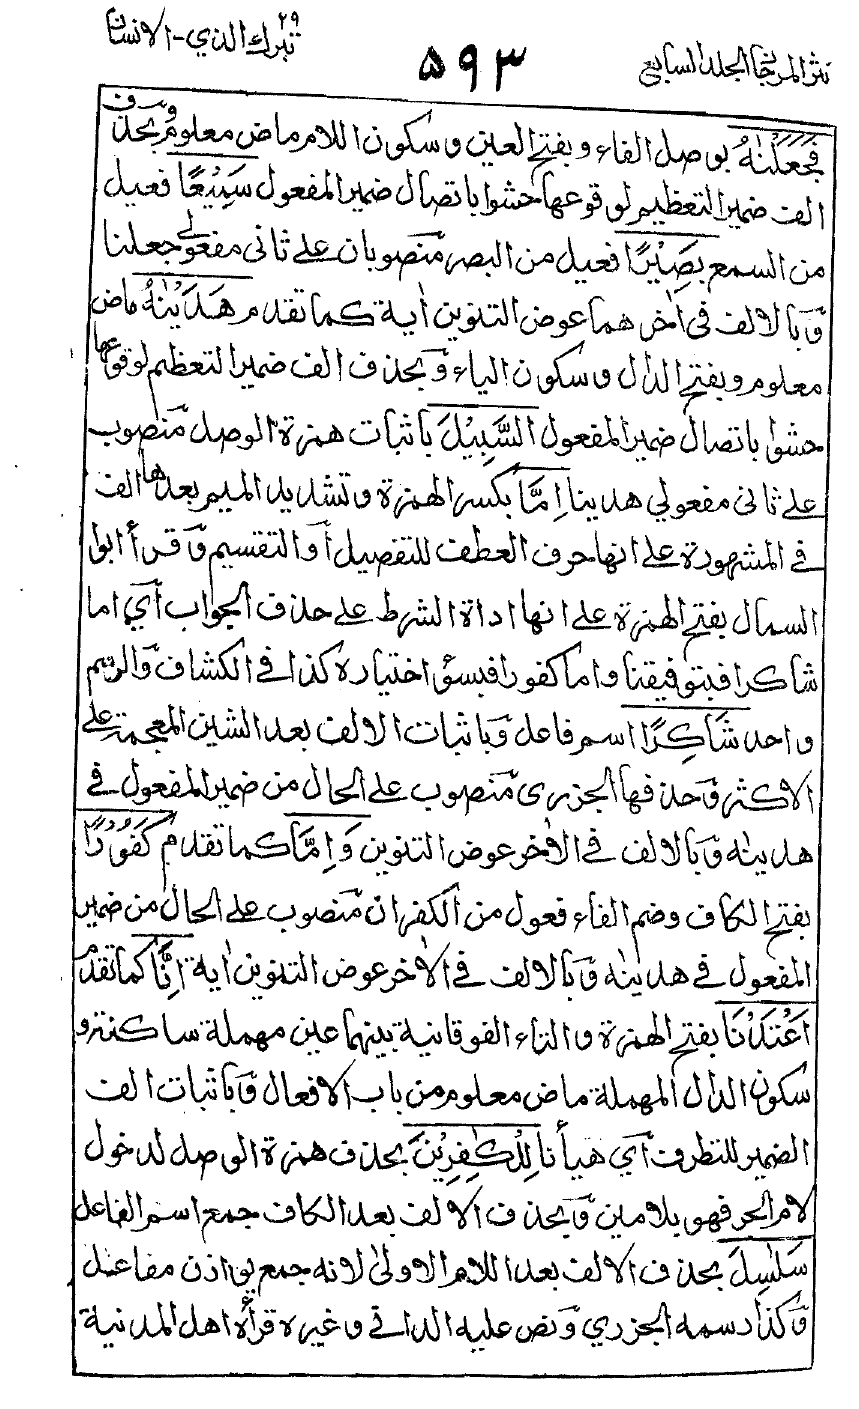 نثر المرجان الجلد السابع
٥٩٣
٢٩
تبرك الذي - الانسان
فَجَعَلْنٰهُ بوصل الفاء وبفتح العين وسكون اللام ماض معلوم وبحذف
الف ضمير التعظيم لوقوعها حشوا باتصال ضمير المفعول سَمِيْعًا فعيل
من السمع بَصِيْرًا فعيل من البصر منصوبان على ثانى مفعولي جعلنا
وبالالف فى اخرهما عوض التنوين اٰية كما تقدم هَدَيْنٰهُ ماض
معلوم وبفتح الدال وسكون الياء وبحذف الف ضمير التعظيم لوقوعها
حشوا باتصال ضمير المفعول السَّبِيْلَ باثبات همزة الوصل منصوب
على ثانى مفعولي هدينا اِمَّا بكسر الهمزة وتشديد الميم بعدها الف
في المشهورة على انها حرف العطف للتفصيل أو التقسيم وقرأ ابوا
السمال بفتح الهمزة على انها اداة الشرط على حذف الجواب أي اما
شاكرا فبتوفيقنا واما كفورا فبسوٓء اختياره كذا في الكشاف والرسم
واحد شَاكِرًا اسم فاعل وباثبات الالف بعد الشين المعجمة على
الاكثر وحذفها الجزرى منصوب على الحال من ضمير المفعول في
هدينٰه وبالالف في الاٰخر عوض التنوين وَاِمَّا كما تقدم كَفُوْرًا
بفتح الكاف وضم الفاء فعول من الكفران منصوب على الحال من ضمير
المفعول في هدينٰه وبالالف في الاٰخر عوض التنوين اٰية اِنَّا كما تقدم
اَعْتَدْنَا بفتح الهمزة والتاء الفوقانية بينهما عين مهملة ساكنة و
سكون الدال المهملة ماض معلوم من باب الافعال وباثبات الف
الضمير للتطرف أي هيأنا لِلْكٰفِرِيْنَ بحذف همزة الوصل لدخول
لام الجر فهو بلامين وبحذف الالف بعد الكاف جمع اسم الفاعل
سَلٰسِلَ بحذف الالف بعد اللام الاولىٰ لانه جمع يوازن مفاعل
وكذا رسمه الجزري ونص عليه الدانى وغيره قرأه اهل المدنية